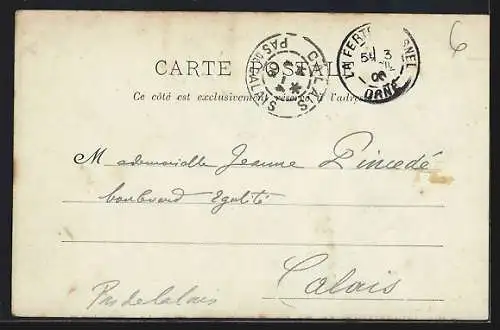 6
CARTE POSTALE
Ce côté est exclusivement réservé à l'adresse
CALAIS
PAS DE CALAIS
LA FERTÉ
ORNE
Mademoiselle Jeanne Pincedé
boulevard Egalité
Calais
Pas de Calais